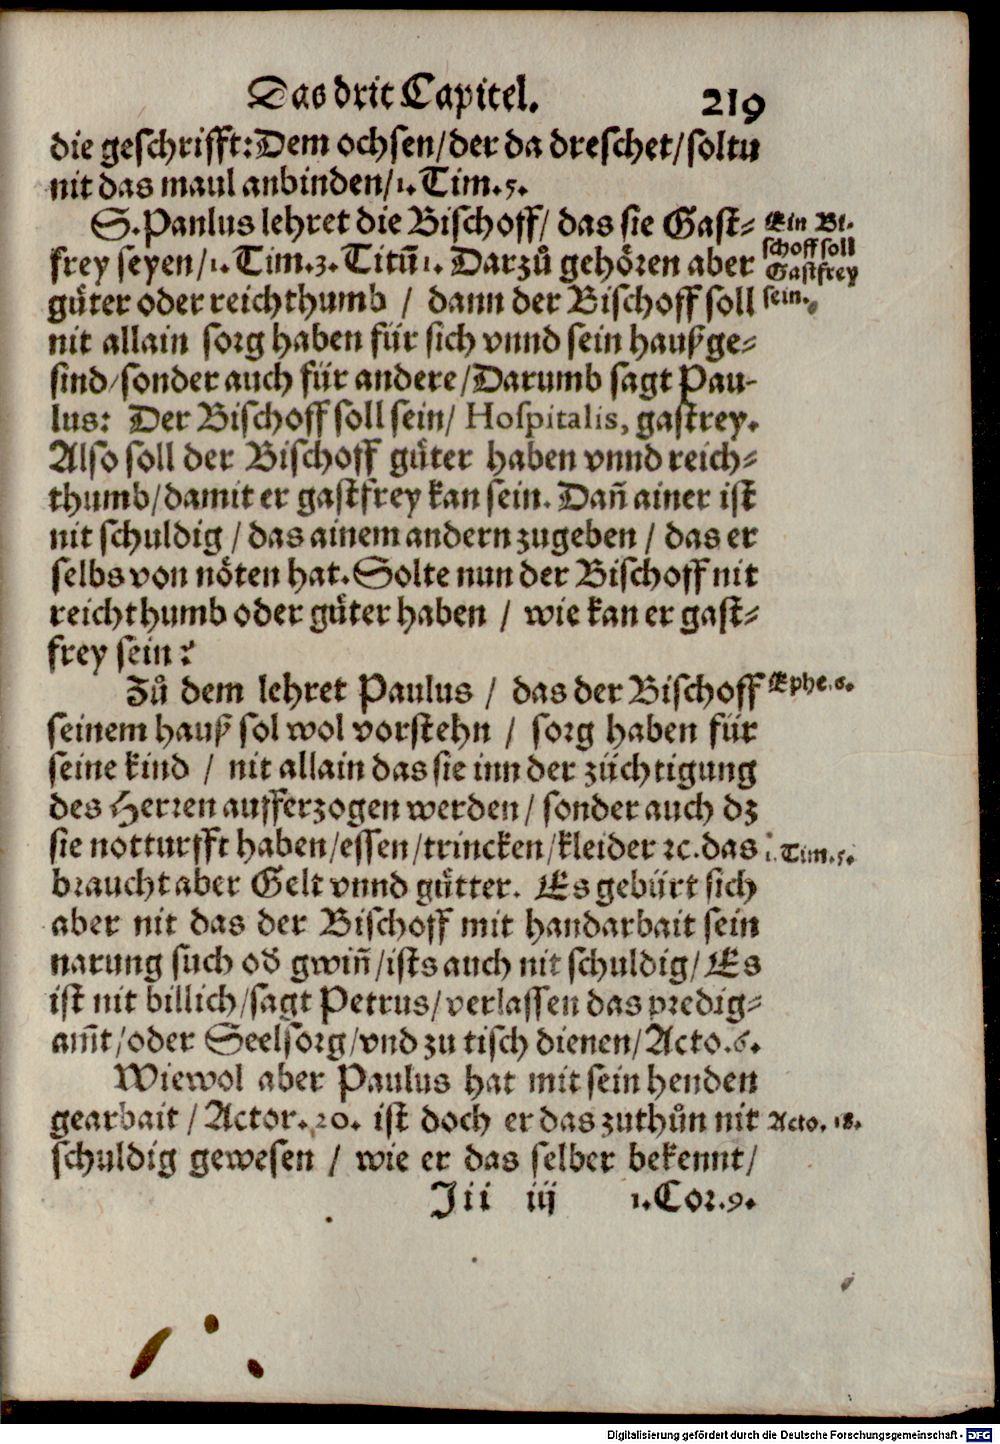 Das drit Capitel. 219
die geschrifft: Dem ochsen/ der da dreschet/ soltu
nit das maul anbinden/ 1. Tim. 5.
S. Paulus lehret die Bischoff/ das sie Gast⸗
frey seyen/ 1. Tim. 3. Titū 1. Darzů gehören aber
gůter oder reichthumb / dann der Bischoff soll
nit allain sorg haben für sich vnnd sein haußge⸗
sind/ sonder auch für andere/ Darumb sagt Pau-
lus: Der Bischoff soll sein/ Hospitalis, gastrey.
Also soll der Bischoff gůter haben vnnd reich⸗
thumb/ damit er gastfrey kan sein. Dañ ainer ist
nit schuldig / das ainem andern zugeben / das er
selbs von nöten hat. Solte nun der Bischoff nit
reichthumb oder gůter haben / wie kan er gast⸗
frey sein?
Ein Bi⸗
schoff soll
Gastfrey
sein.
Zů dem lehret Paulus / das der Bischoff
seinem hauß sol wol vorstehn / sorg haben für
seine kind / nit allain das sie inn der züchtigung
des Herren aufferzogen werden/ sonder auch dz
sie notturfft haben/ essen/ trincken/ kleider ꝛc. das
braucht aber Gelt vnnd gůtter. Es gebürt sich
aber nit das der Bischoff mit handarbait sein
narung such oď gwiñ/ ists auch nit schuldig/ Es
ist nit billich/ sagt Petrus/ verlassen das predig⸗
am̃t/ oder Seelsorg/ vnd zu tisch dienen/ Acto. 6.
Ephe. 6.
1. Tim. 5.
Wiewol aber Paulus hat mit sein henden
gearbait / Actor. 20. ist doch er das zuthůn nit
schuldig gewesen / wie er das selber bekennt/
Acto. 18.
Jii iij 1. Cor. 9.
Digitalisierung gefördert durch die Deutsche Forschungsgemeinschaft - DFG